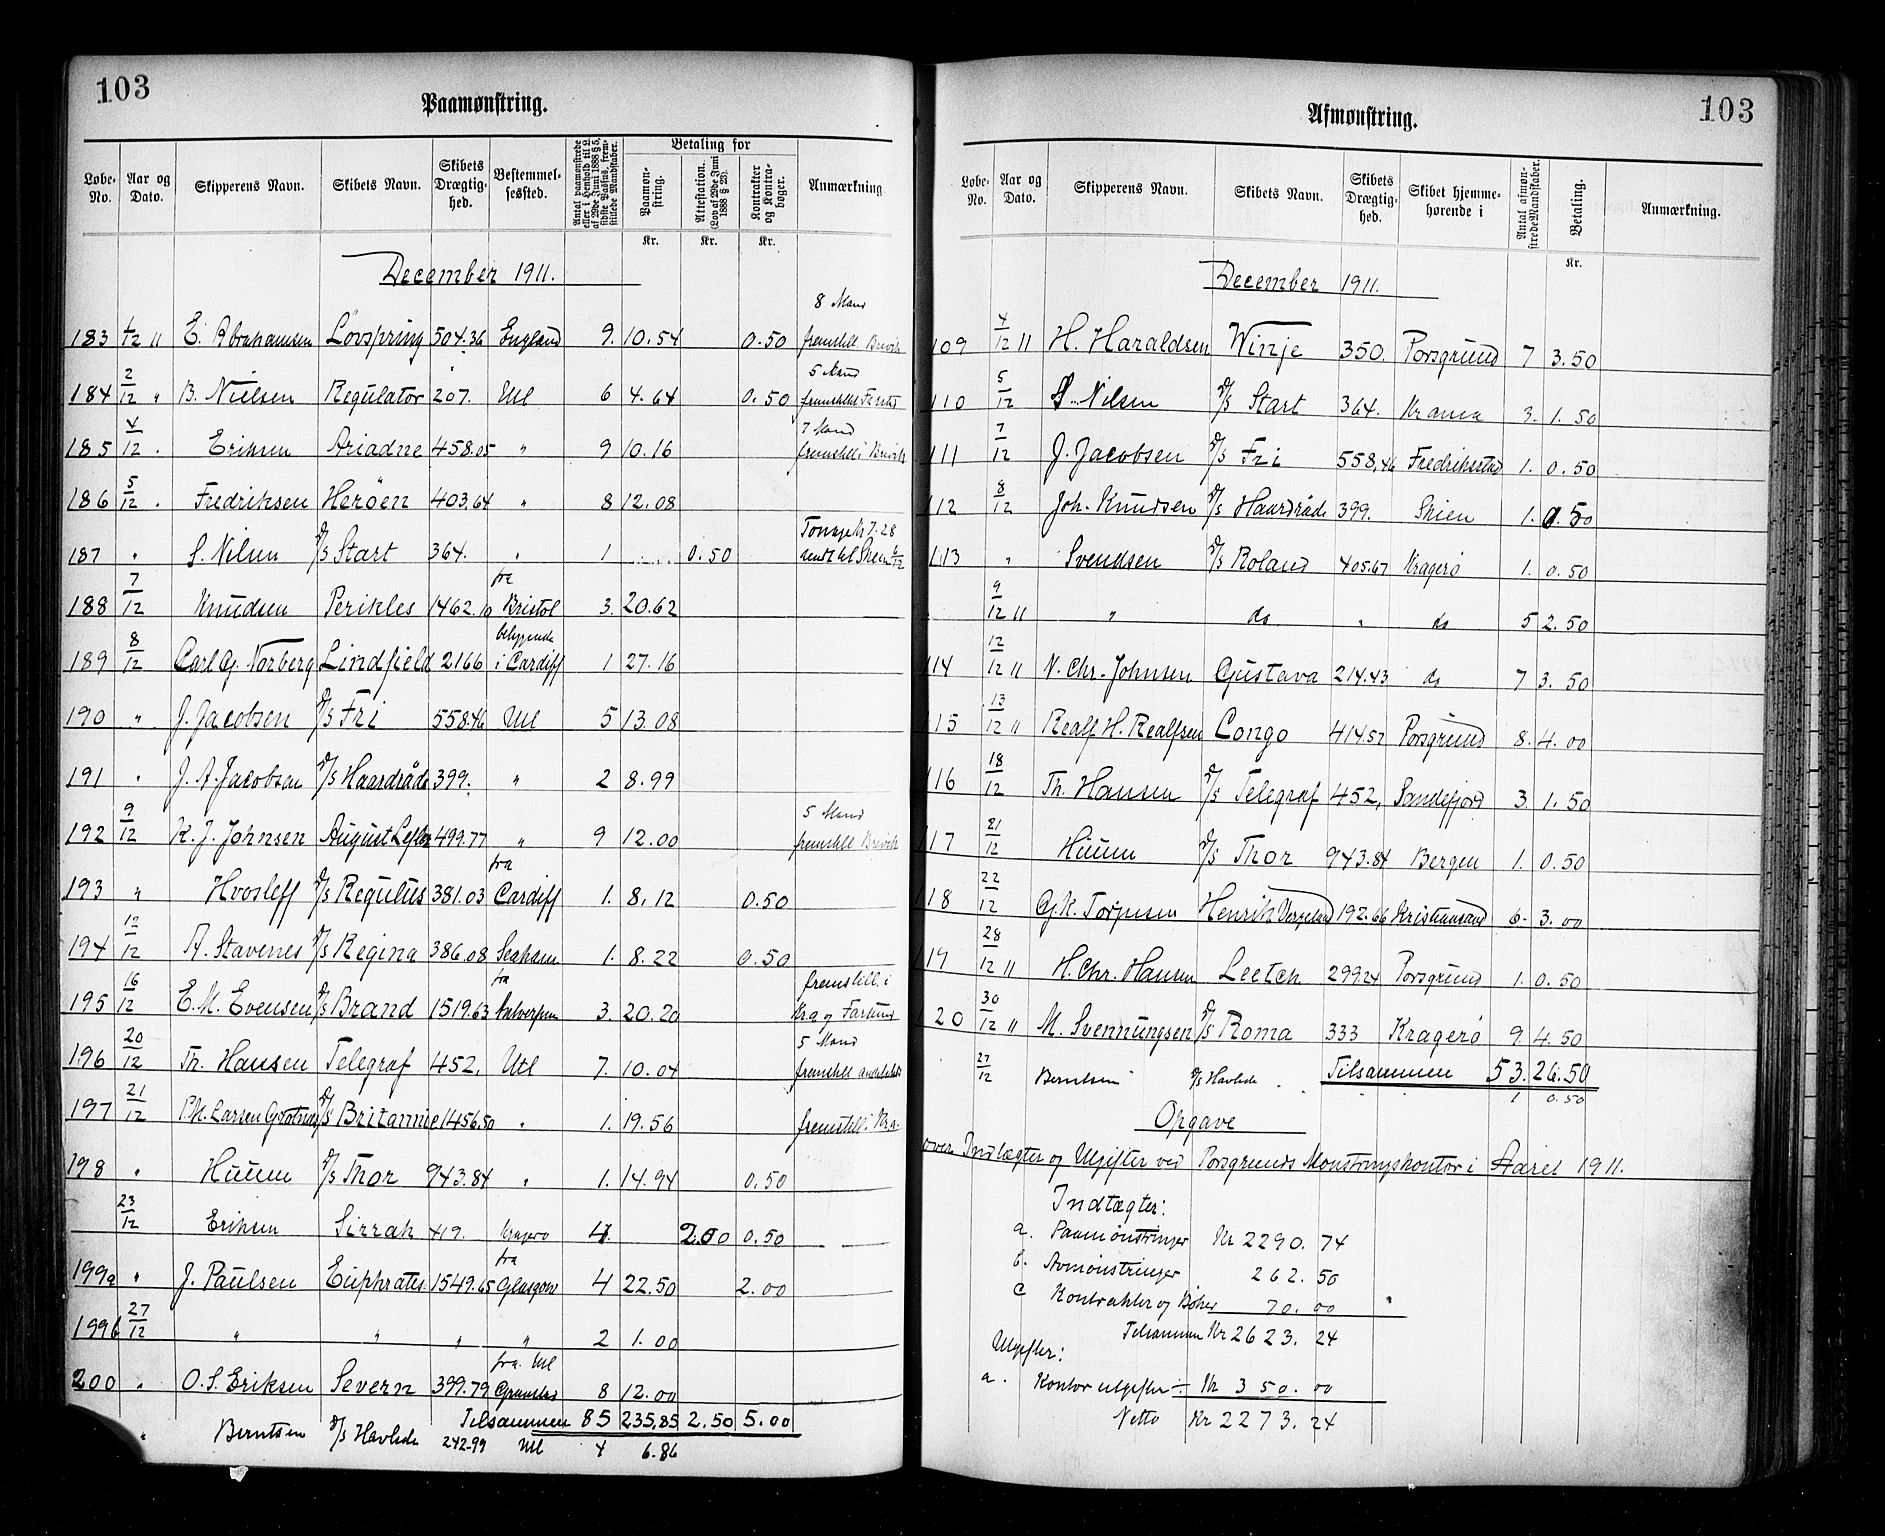 103
Paamønstring.
Løbe-No. Aar og Dato. Skipperens Navn. Skibets Navn. Skibets Drægtighed. Bestemmelsessted. Antal paamønstrede eller i Henhold til L. af 29de Juni 1888 § 5, sidste Passus, fremstillede Mandskaber. Betaling for Paamønstring. Kr. Attestation. (Lov af 29de Juni 1888 § 23). Kr. Kontrakter og Kontrabøger. Kr. Anmærkning
December 1911.
8 Mand
183 1/12 11 E. Abrahamsen Lövspring 504.36 England 9. 10.54 0.50 fremstill. Brevik
5 Mand
184 2/12 " B. Nielsen Regulator 207. Utl 6 4.64 0.50 fremstillet
7 Mand
185 4/12 . Eriksen Ariadne 458.05 " 9 10.16 fremstill i Brevik
186 5/12 . Fredriksen Heröen 403.64 " 8 12.08
187 " S. Nilsen D/S Start 364. " 1 0.50 sendt til Skien 6/12
fra
188 7/12 Knudsen Perikles 1462.10 Bristol 3. 20.62
189 8/12 Carl G. Norberg Lindfield 2166 beliggende i Cardiff 1 27.16
190 " J. Jacobsen D/S Fri 558.46 Utl 5 13.08
191 " J. A. Jacobsen D/S Haardråde 399. " 2 8.99
5 Mand
192 9/12 K. J. Johnsen August Leffler 499.77 " 9 12.00 fremstill Brevik
fra
193 " Hvosleff D/S Regulus 381.03 Cardiff 1. 8.12 0.50
194 12/12 A. Stavenes D/S Regina 386.08 Seaham 1. 8.22 0.50
fra fremstill. i
195 16/12 E. M. Evensen D/S Brand 1519.63 Antwerpen 3. 20.20 Kra og Farsund
5 Mand
196 20/12 Th. Hansen Telegraf 452, Utl 7. 10.04 fremstill andetsteds
197 21/12 Larsen D/S Britannic 1456.50 " 1. 19.56 fremstill i Kra.
198 " Huum D/S Thor 943.84 " 1. 14.94 0.50
23/12 Eriksen Sirrah 419. Kragerö 4. 2.00 0.50
fra
199a " J. Paulsen Euphrates 1549.65 Glasgow 4 22.50 2.00
199b 27/12 " " " " 2 1.00
fra Utl
200 " O. S. Eriksen Severn 399.79 Grimstad 8 12.00
Tilsammen 85 235.85 2.50 5.00
" Berntsen D/S Havlide 242.99 Utl 4 6.86
103
Afmønstring.
Løbe-No. Aar og Dato. Skipperens Navn. Skibets Navn. Skibets Drægtighed. Skibet hjemmehørende i Antal afmønstrede Mandskaber. Betaling. Kr. Anmærkning.
December 1911.
109 4/12 11 H. Haraldsen Winje 350. Porsgrund 7 3.50
110 5/12 S. Nilsen D/S Start 364. Krania 3. 1.50
111 7/12 J. Jacobsen D/S Fri 558.46 Fredrikstad 1. 0.50
112 8/12 Joh. Knudsen D/S Haardråde 399. Skien 1. 0.50
113 " Svendsen D/S Roland 405.67 Kragerö 1. 0.50
9/12 11 " do " do 5 2.50
114 12/12 11 N. Chr. Johnsen Gustava 214.43 do 7 3.50
115 13/12 11 Realf H. Realfsen Congo 414.57 Porsgrund 8. 4.00
116 18/12 Th. Hansen D/S Telegraf 452, Sandefjord 3. 1.50
117 21/12 Huum D/S Thor 943.84 Bergen 1. 0.50
118 22/12 G. K. Torjusen Henrik Wergeland 192.66 Kristiansand 6. 3.00
119 28/12 11 H. Chr. Hansen Leetch 299.24 Porsgrund 1. 0.50
120 30/12 11 M. Svennungsen D/S Roma 333 Kragerö 9. 4.50
Tilsammen 53. 26.50
27/12 Berntsen D/S Havlide 1 0.50
Opgave
over Indtægter og Utgifter ved Porsgrunds Mönstringskontor i Aaret 1911.
Indtægter:
a. Paamönstringer Kr 2290.74
b. Avmönstringer 262.50
c Kontrakter og Böker 70.00
Tilsammen Kr 2623.24
Utgifter:
a. Kontorutgifter ÷ Kr 350.00
Netto Kr 2273.24